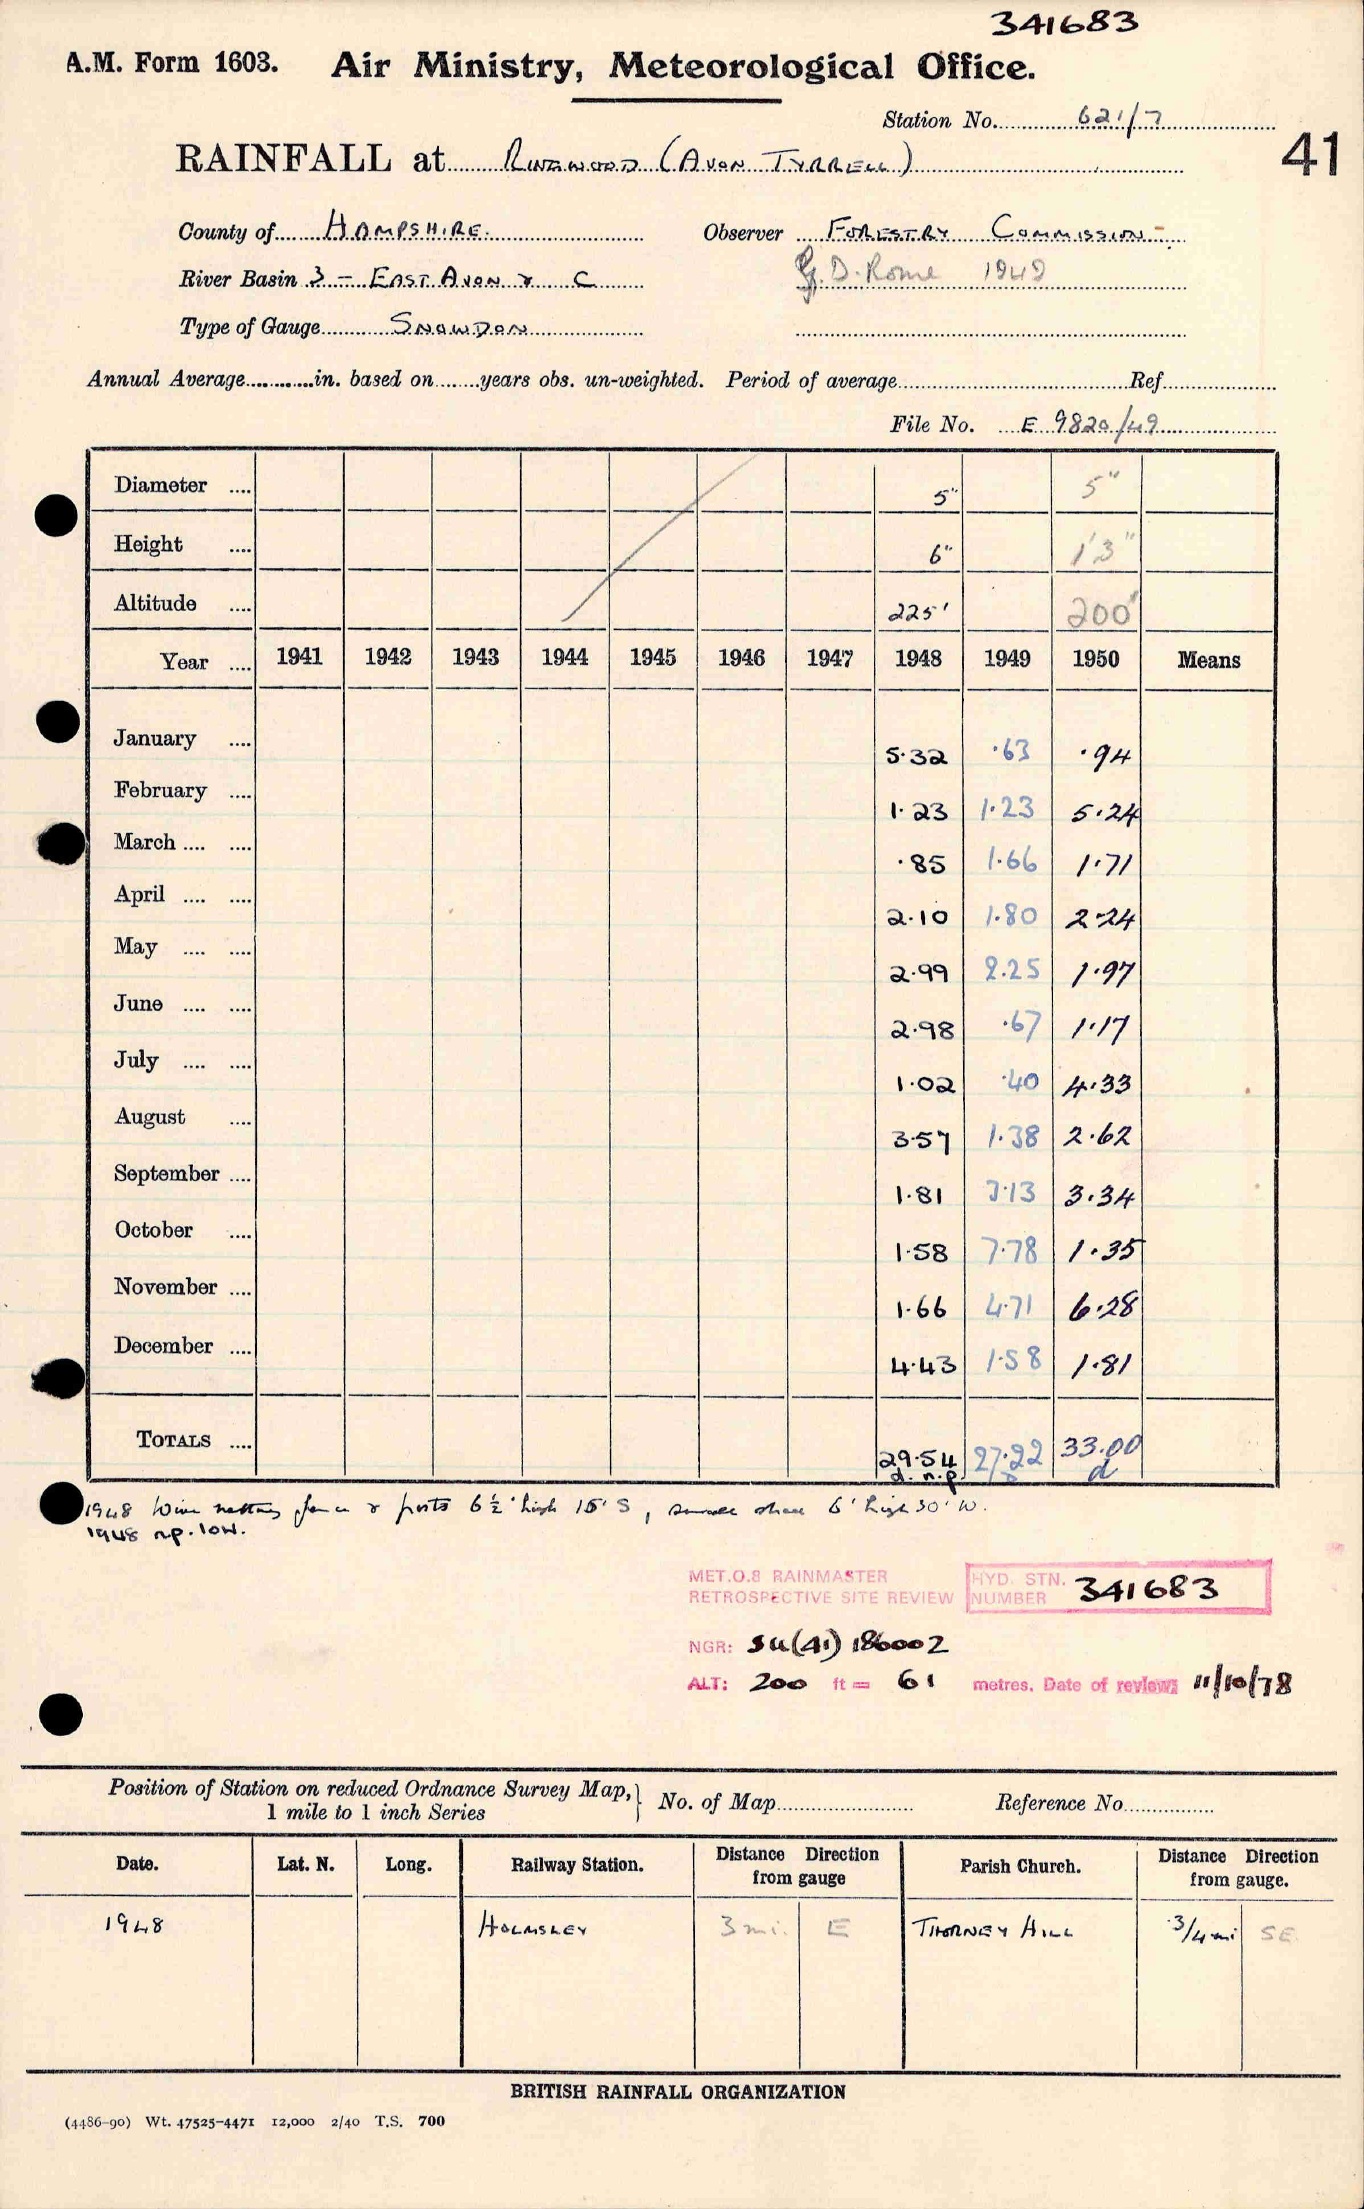 341683
A.M. Form 1603. Air Ministry, Meteorological Office.
Station No. 621/7
RAINFALL at RINGWOOD (AVON TYRRELL)
41
County of HAMPSHIRE. Observer FORESTRY COMMISSION.
River Basin 3 - EAST AVON & C D. Rome 1949
Type of Gauge SNOWDON
Annual Average in. based on years obs. un-weighted. Period of average Ref
File No. E 9820/49
Diameter .... 5" 5"
Height .... 6" 1'3"
Altitude .... 225' 200'
Year .... 1941 1942 1943 1944 1945 1946 1947 1948 1949 1950 Means
January .... 5.32 .63 .94
February .... 1.23 1.23 5.24
March .... .... .85 1.66 1.71
April .... .... 2.10 1.80 2.24
May .... .... 2.99 2.25 1.97
June .... .... 2.98 .67 1.17
July .... .... 1.02 .40 4.33
August .... 3.57 1.38 2.62
September .... 1.81 3.13 3.34
October .... 1.58 7.78 1.35
November .... 1.66 4.71 6.28
December .... 4.43 1.58 1.81
TOTALS .... 29.54 27.22 33.00
d. n.p. d
1948 Wire netting fence & posts 6½' high 15' S, 6' high 30' W.
1948 n.p. low.
MET.O.8 RAINMASTER
RETROSPECTIVE SITE REVIEW
HYD. STN. NUMBER 341683
NGR: SU(41) 186002
ALT: 200 ft = 61 metres. Date of review: 11/10/78
Position of Station on reduced Ordnance Survey Map, 1 mile to 1 inch Series } No. of Map Reference No.
Date. Lat. N. Long. Railway Station. Distance Direction from gauge Parish Church. Distance Direction from gauge.
1948 HOLMSLEY 3 mi. E THORNEY HILL 3/4 mi SE.
BRITISH RAINFALL ORGANIZATION
(4486-90) Wt. 47525-4471 12,000 2/40 T.S. 700